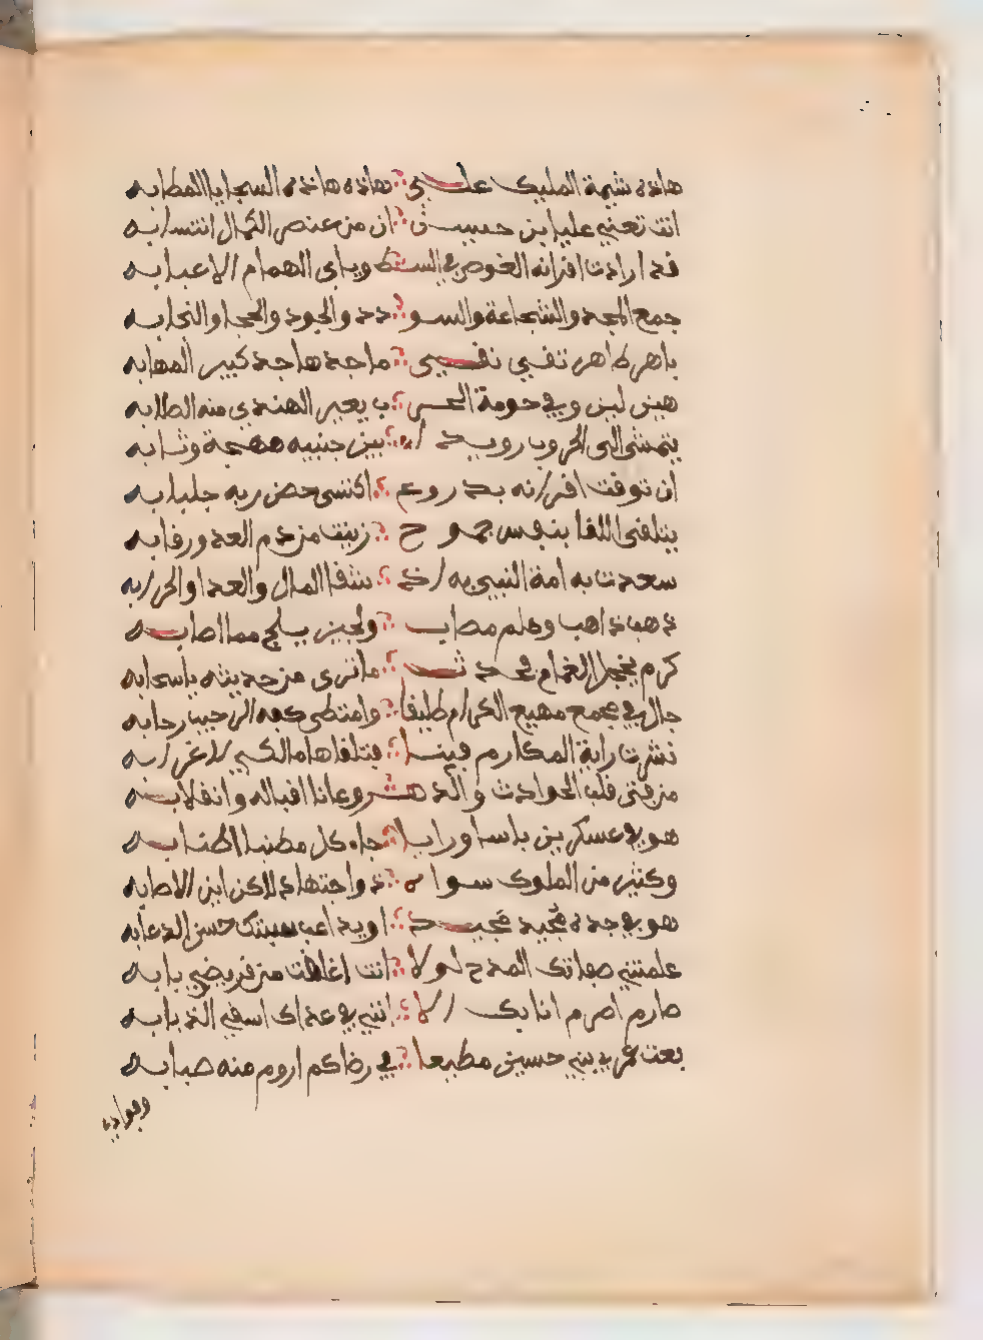 هاذه شيمة المليك علي ؞ هاذه هاذه السجايا المطابه
انت تعني عليا ابن حسين ؞ ان من عنصر الكمال انتسابه
قد ارادت اقرانه الغوص في السقط وبابى الهمام الا عبابه
جمع المجد والشجاعة والسو ؞ دد والجود والحجا والنجابه
باهر طاهر تقي نقي ؞ ماجد هاجد كبير المهابه
هين لين وفي حومة الحر ؞ ب يعير الهندي منه الطلابه
يتمشى الى الحروب رويدا ؞ بين جنبيه مهجة وثابه
ان توقت اقرانه بدروع ؞ اكتسى حصن ربه جلبابه
يتلقى اللقا بنفس جموح ؞ زينت من دم العدو رقابه
سعدت به امة النبي به اذ ؞ شتت المال والعدا والحرابه
ذهب ذاهب وعلم مصاب ؞ ولجين يسلح مما اصابه
كرم يخجل الغمام فحدث ؞ ما ترى من حديثه يا سحابه
جال في مجمع مهيع الكرام طليقا ؞ وامتطى كفه الرحيب رحابه
نشرت راية المكارم فينا ؞ فتلقاها مالكي لا غرابه
من فتى قلب الحوادث والدهر وعانا اقباله وانقلابه
هو في عسكرين باسا ورايا ؞ جاه كل مطنبا اطنابه
وكثير من الملوك سواه ؞ ذو اجتهاد لاكن اين الاصابه
هو في جده مجيد مجيد ؞ او يداعب حسن الدعابه
علمتني صفاتك المدح لولا ؞ انت اغلقت من قريضي بابه
صارم اصرم انا بك الا ؞ انني في عداك اسقي الذبابه
بعت عمري بني حسين مطيعا ؞ في رضاكم اروم منه صبابه
وفؤادي